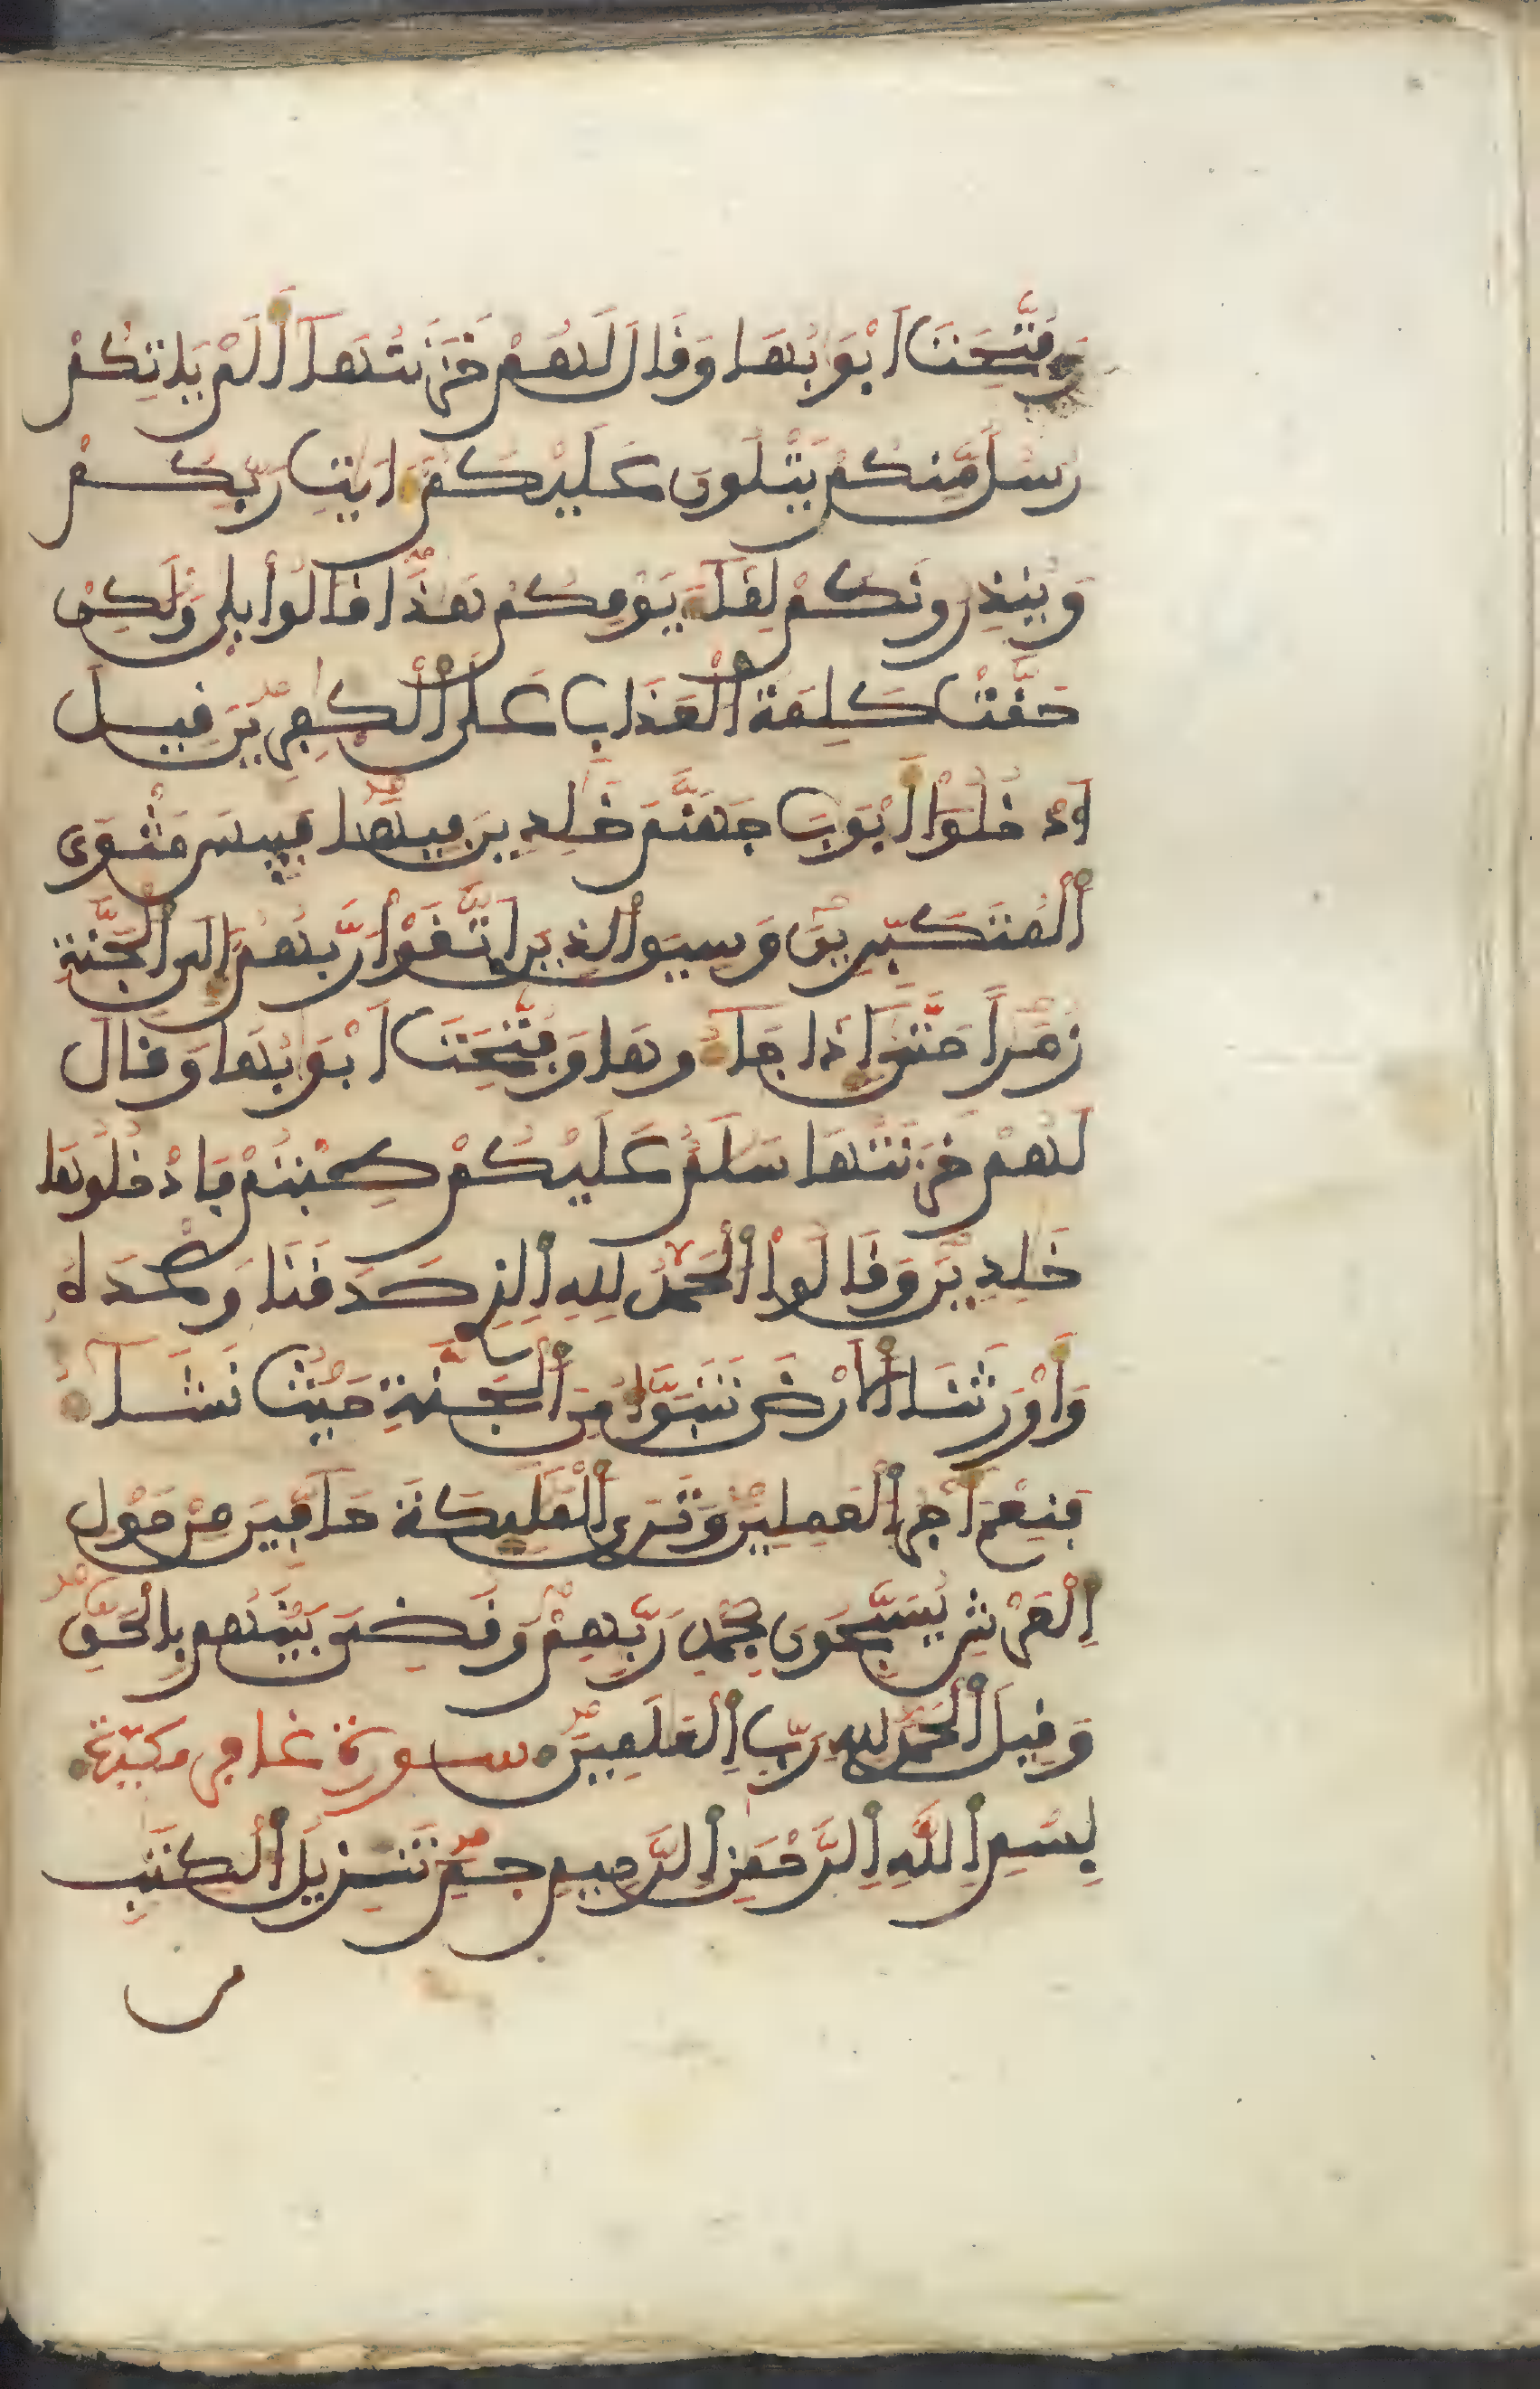 وَفُتِّحَتَ ابْوَبُهَا وَقَالَ لَهُمْ خَزَنَتُهَآ أَلَمْ يَاتِكُمْ
رُسُلٌ مِّنكُمْ يَتْلُونَ عَلَيْكُمُۥٓ ءَايَتِ رَبِّكُمْ
وَيُنذِرُونَكُمْ لِقَآءَ يَوْمِكُمْ هَذَا قَالُوا بَلَى وَلَكِنْ
حَقَّتْ كَلِمَةُ الْعَذَابِ عَلَى الْكَفِرِينَ قِيلَ
ادْخُلُوا أَبْوَبَ جَهَنَّمَ خَلِدِينَ فِيهَا فَبِيسَ مَثْوَى
الْمُتَكَبِّرِينَ وَسِيقَ الذِينَ اتَّقَوْا رَبَّهُمُۥٓ إِلَى الْجَنَّةِ
زُمَرًا حَتَّىٰ إِذَا جَآءُوهَا وَفُتِّحَتَ ابْوَبُهَا وَقَالَ
لَهُمْ خَزَنَتُهَا سَلَمٌ عَلَيْكُمْ طِبْتُمْ فَادْخُلُوهَا
خَلِدِينَ وَقَالُوا الْحَمْدُ لِلهِ الذِي صَدَقَنَا وَعْدَهُ
وَأَوْرَثَنَا الَارْضَ نَتَبَوَّأُ مِنَ الْجَنَّةِ حَيْثُ نَشَآءُ
فَنِعْمَ أَجْرُ الْعَمِلِينَ وَتَرَى الْمَلَيِكَةَ حَآفِّينَ مِنْ حَوْلِ
الْعَرْشِ يُسَبِّحُونَ بِحَمْدِ رَبِّهِمْ وَقُضِيَ بَيْنَهُم بِالْحَقِّ
وَقِيلَ الْحَمْدُ لِلهِ رَبِّ الْعَلَمِينَ سورة غافر مكية
بِسْمِ اللَّهِ الرَّحْمَنِ الرَّحِيمِ حمٓ تَنزِيلُ الْكِتَبِ
من